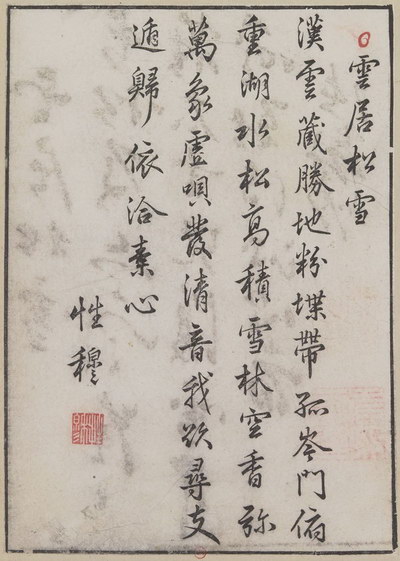 雲居松雪
漢雲藏勝地粉堞帶孤岑門俯
重湖水松高積雪林空香弥
萬象虛唄發清音我欲尋支
遁歸依洽素心
性穆